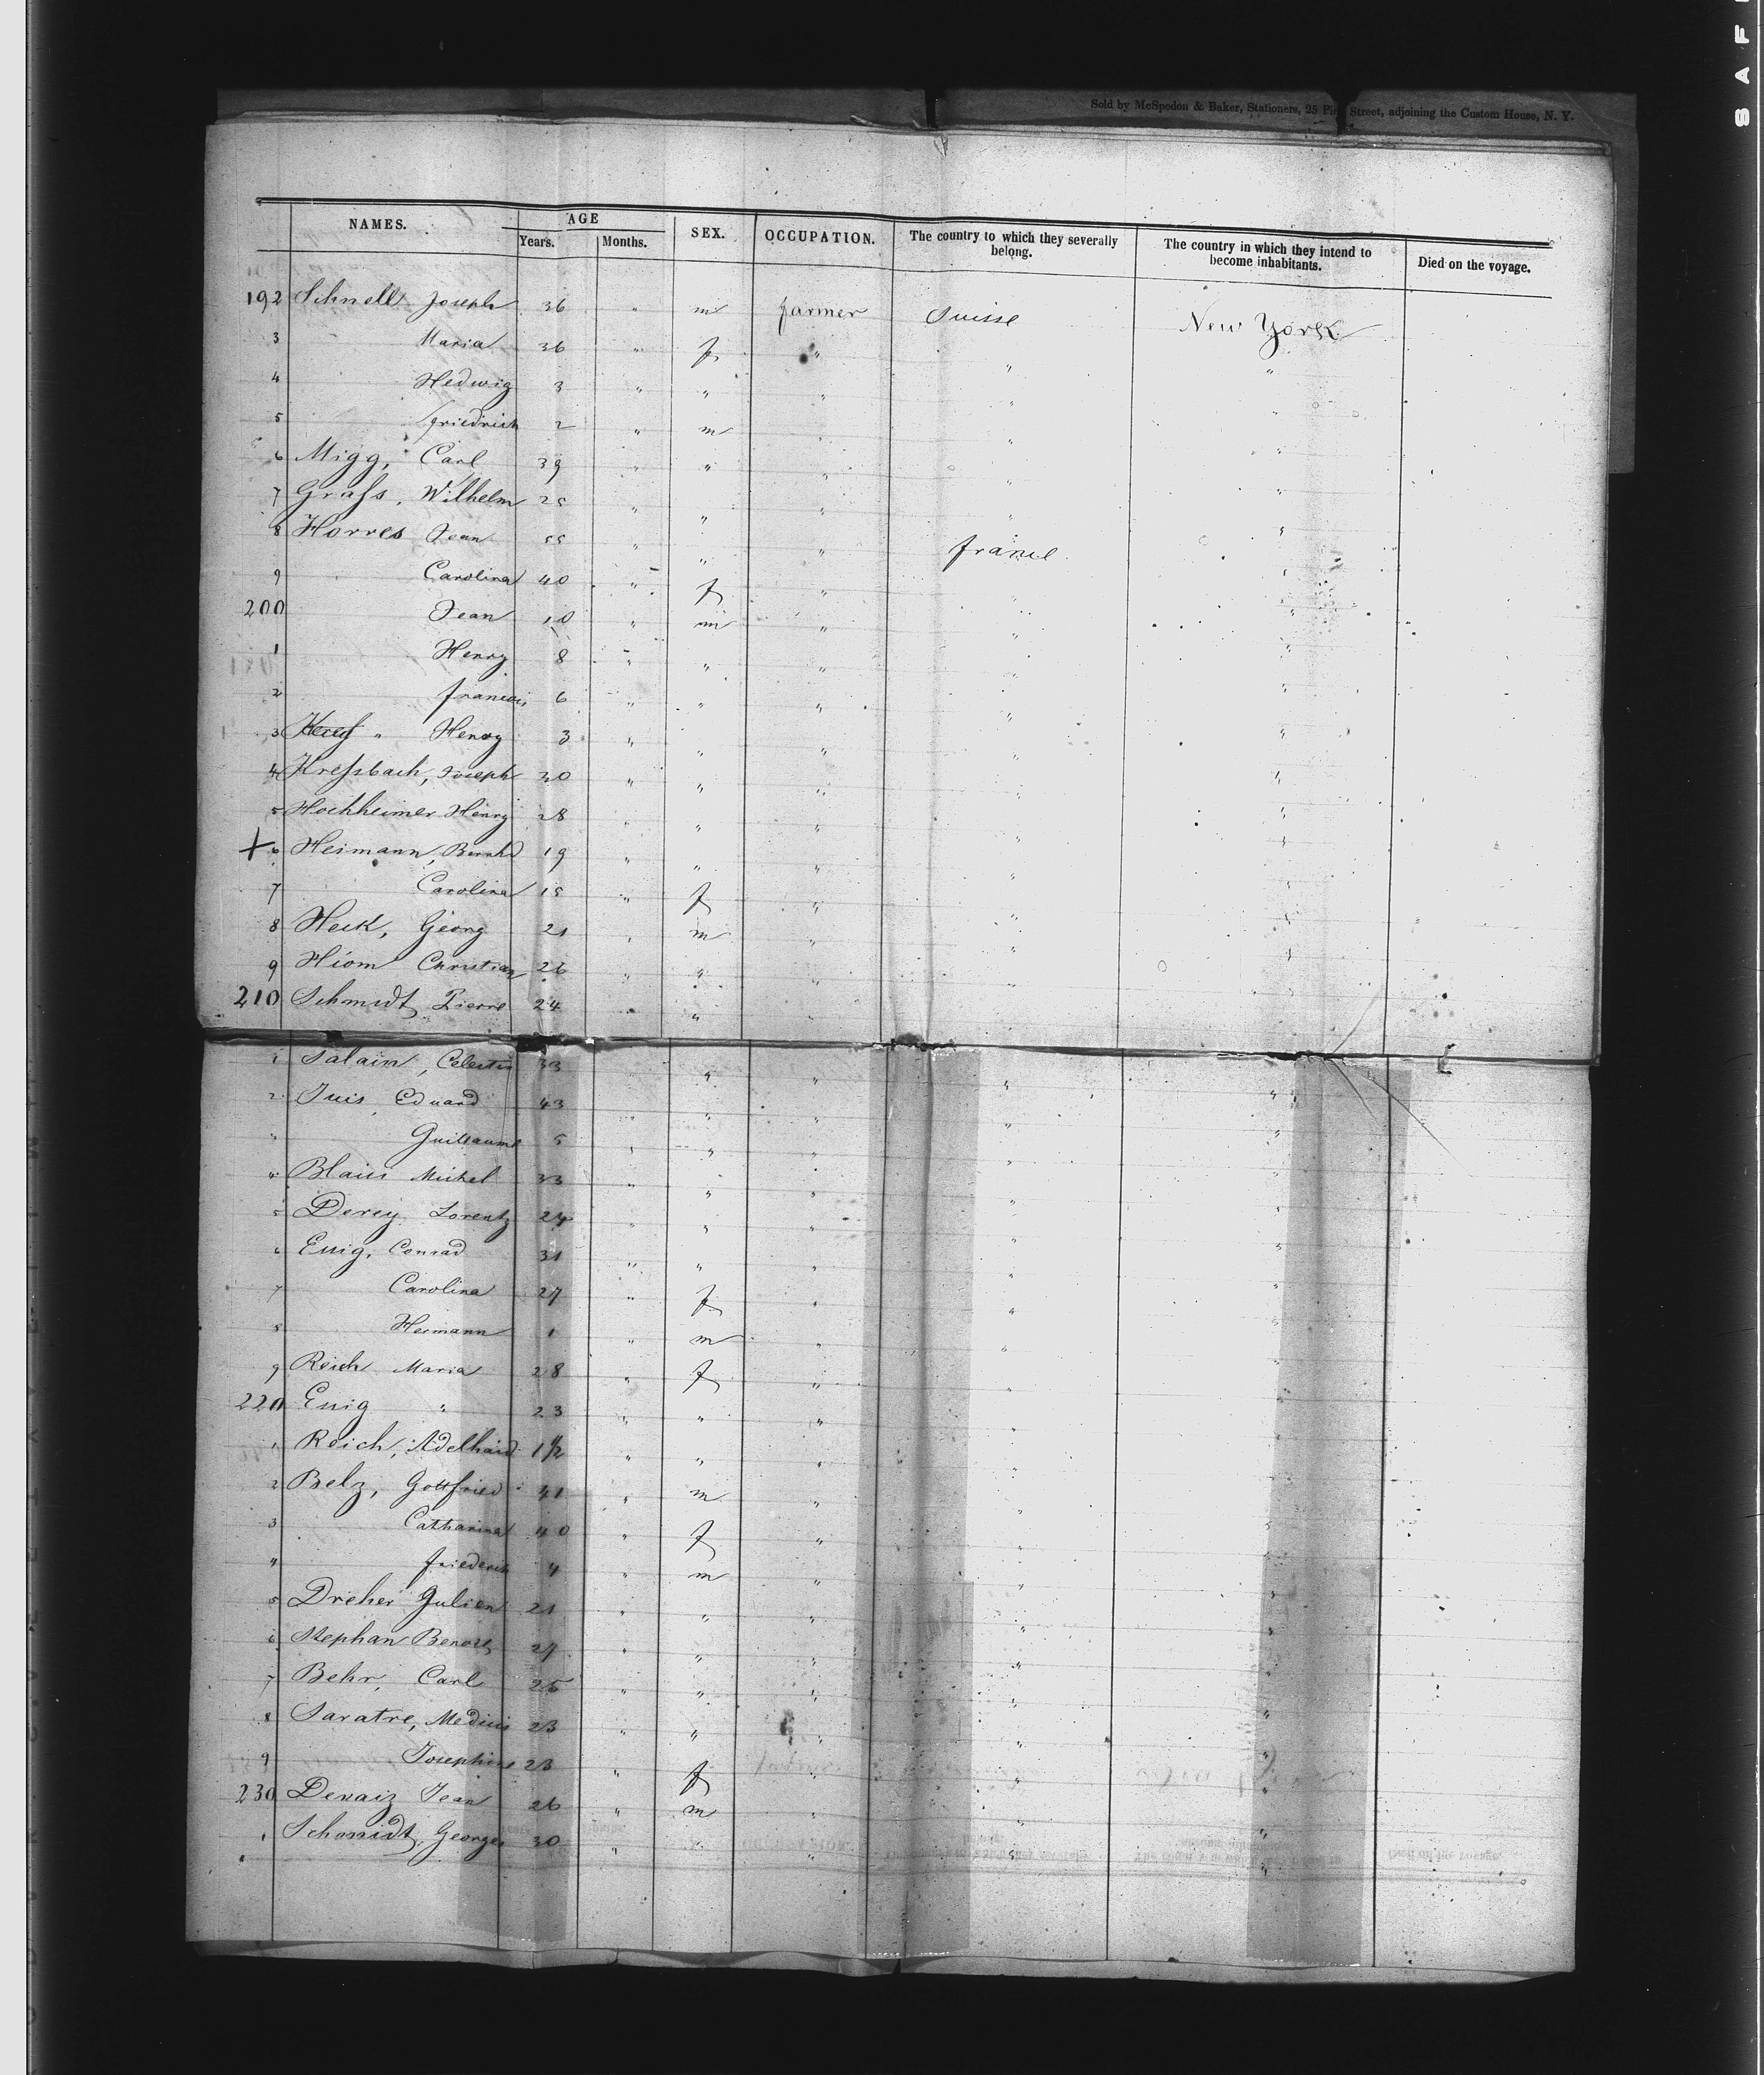 Sold by McSpedon & Baker, Stationers, 25 Pine Street, adjoining the Custom House, N. Y.
NAMES. AGE Years. Months. SEX. OCCUPATION. The country to which they severally belong. The country in which they intend to become inhabitants. Died on the voyage.
192 Schnell Joseph 36 " m farmer Suisse New York
3 Maria 36 " f " " "
4 Hedwig 3 " " " " "
5 friedrich 2 " m " " "
6 Migg, Carl 39 " " " " "
7 Grafs, Wilhelm 25 " " " " "
8 Horres Jean 55 " " " france "
9 Carolina 40 " f " " "
200 Jean 10 " m " " "
1 Henry 8 " " " " "
2 francois 6 " " " " "
3 " Henry 3 " " " " "
4 Krefsbach, Joseph 30 " " " " "
5 Hochheimer Henry 28 " " " " "
+ 6 Heimann, Bernhd 19 " " " " "
7 Carolina 15 " f " " "
8 Heck, Georg 21 " m " " "
9 Hiom Christian 26 " " " " "
210 Schmidt Pierre 24 " " "
1 Salain, Celestin 33 " " " "
2 Juis Eduard 43 " " " " "
3 Guillaume 5 " " " " "
4 Blaiis Michel 33 " " " " "
5 Derey Lorentz 24 " " " " "
6 Enig, Conrad 31 " " " " "
7 Carolina 27 " f " " "
8 Hermann 1 " m " " "
9 Reich Maria 28 " f " " "
220 Enig " 23 " " " " "
1 Reich, Adelhaid 1 1/2 " " " " "
2 Belz, Gottfried 41 " m " " "
3 Catharina 40 " f " " "
4 friederich 4 " m " " "
5 Dreher Julien 21 " " " " "
6 Stephan 27 " " " " "
7 Behr, Carl 25 " " " " "
8 Saratre, 23 " " " " "
9 Josephine 23 " f " " "
230 Devaiz Jean 26 " m " " "
1 Schmidt, Georges 30 " " " " "
SAF